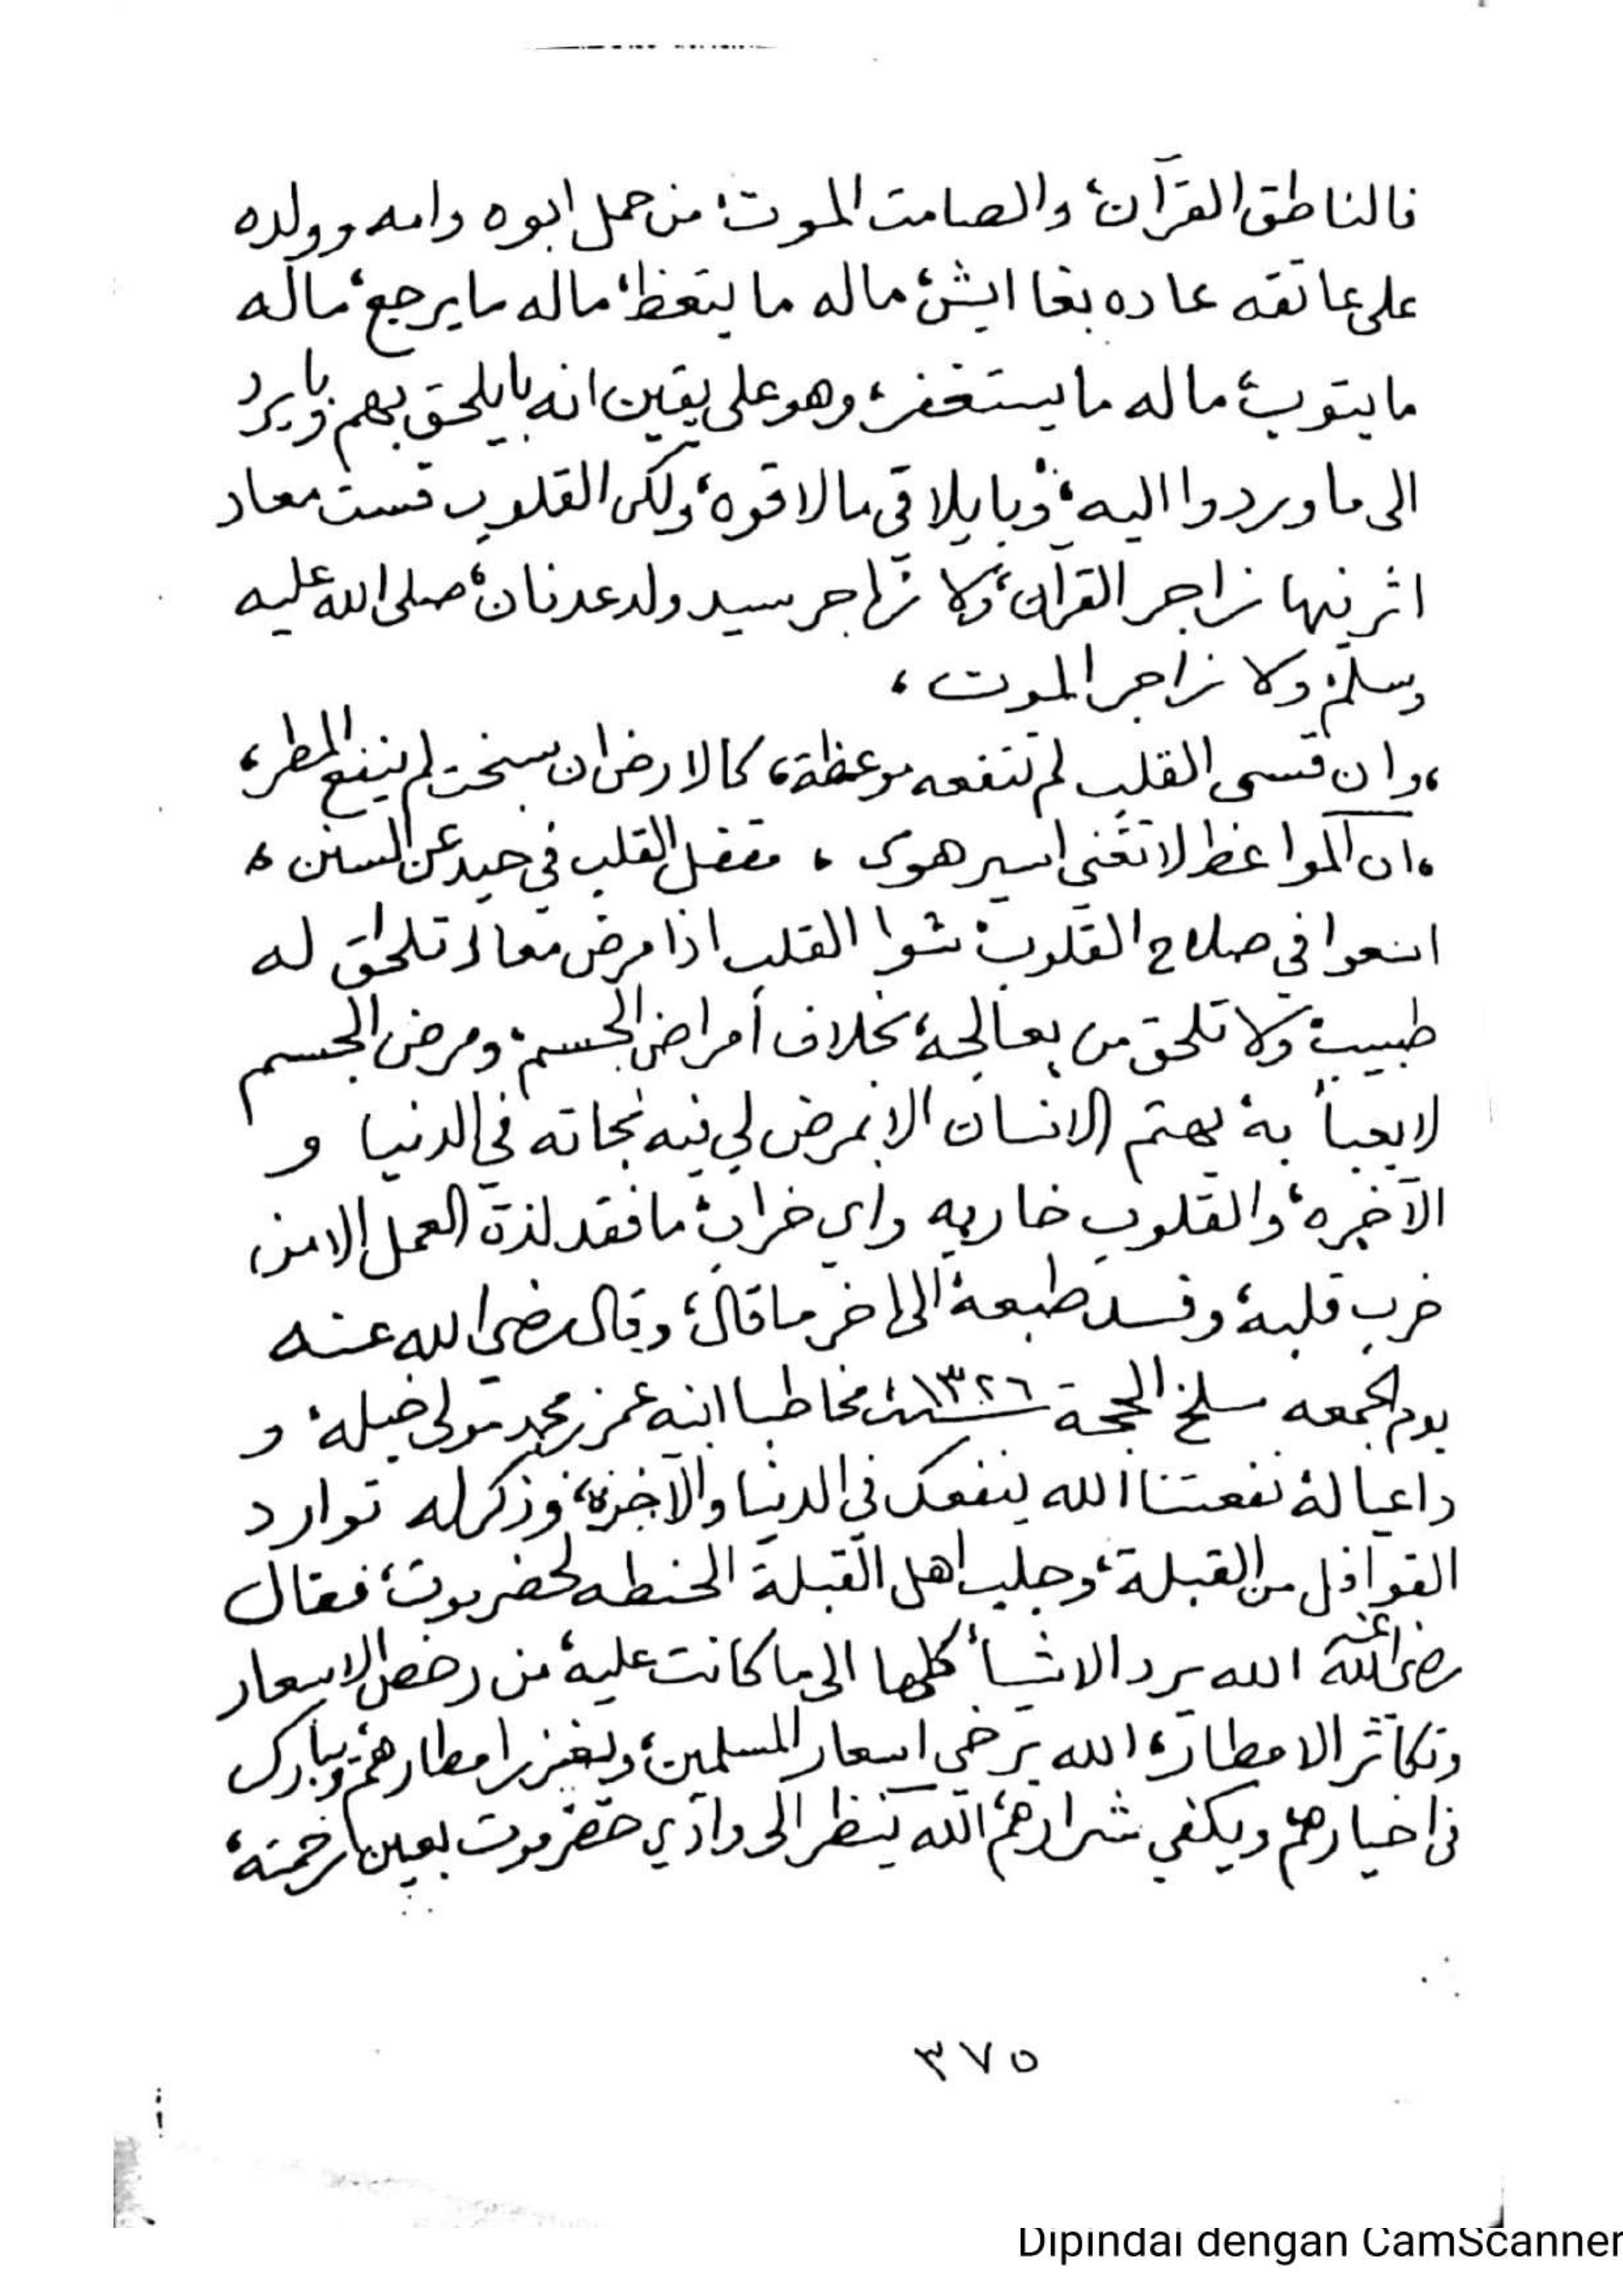 فالناطق القرآن، والصامت الموت، من حمل ابوه وامه وولده
على عاتقه عاده بغا ايش، ماله ما يتعظ، ماله ما يرجع، ماله
ما يتوب، ماله ما يستغفر، وهو على يقين انه بايلحق بهم، وبايرد
الى ما وردوا اليه، وبايلاقي ما لاقوه، ولكن القلوب قست معاد
اثر فيها زاجر القرآن، ولا زاجر سيد ولد عدنان، صلى الله عليه
وسلم، ولا زاجر الموت،
،وان قسى القلب لم تنفعه موعظة، كالارض ان سبخت لم ينفع المطر،
،ان المواعظ لا تغني اسير هوى ، مقفل القلب في حيد عن السنن ،
اسعوا في صلاح القلوب، شوا القلب اذا مرض معاد تلحق له
طبيب، ولا تلحق من يعالجه، بخلاف أمراض الجسم، ومرض الجسم
لا يعبأ به، يهتم الانسان الا بمرض لي فيه نجاته في الدنيا و
الآخره، والقلوب خاربه واي خراب، ما فقد لذة العمل الا من
خرب قلبه، وفسد طبعه، الى اخر ما قال، وقال رضي الله عنه
يوم الجمعه سلخ الحجة سنة ١٣٢٦ مخاطبا ابنه عمر بن محمد مولى خيله، و
داعيا له نفعتنا الله ينفعك في الدنيا والآخرة، وذكر له توارد
القوافل من القبلة، وجلب اهل القبلة الحنطه لحضرموت، فقال
رضي الله عنه الله يرد الاشيأ كلها الى ما كانت عليه، من رخص الاسعار
وتكاثر الامطار، الله يرخي اسعار المسلمين، ويغزر امطارهم، ويبارك
في اخيارهم ويكفي شرارهم، الله ينظر الى وادي حضرموت بعين رحمته،
٣٧٥
Dipindai dengan CamScanner